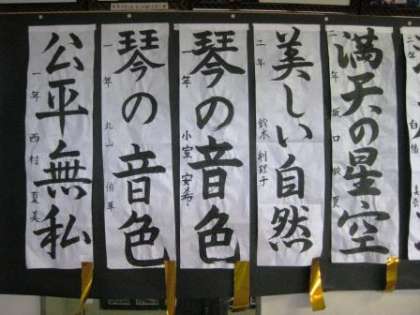 満天の星空
二年
美しい自然
二年 鈴木
琴の音色
一年 小室 安希
琴の音色
一年 丸山
公平無私
一年 西村 夏美